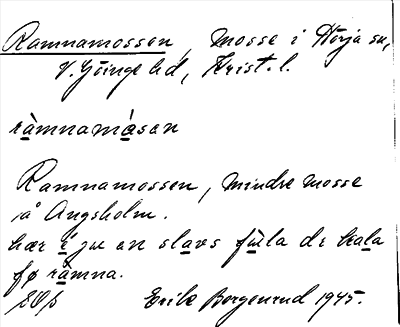 Ramnamossen, mosse i Hörja sn,
V. Göinge hd, Krist. l.
ràmnamåsan
Ramnamossen, mindre mosse
på Ängsholm.
hær i ju en slavs fula di kala
fø ràmna.
Erik Borgenrud 1945.